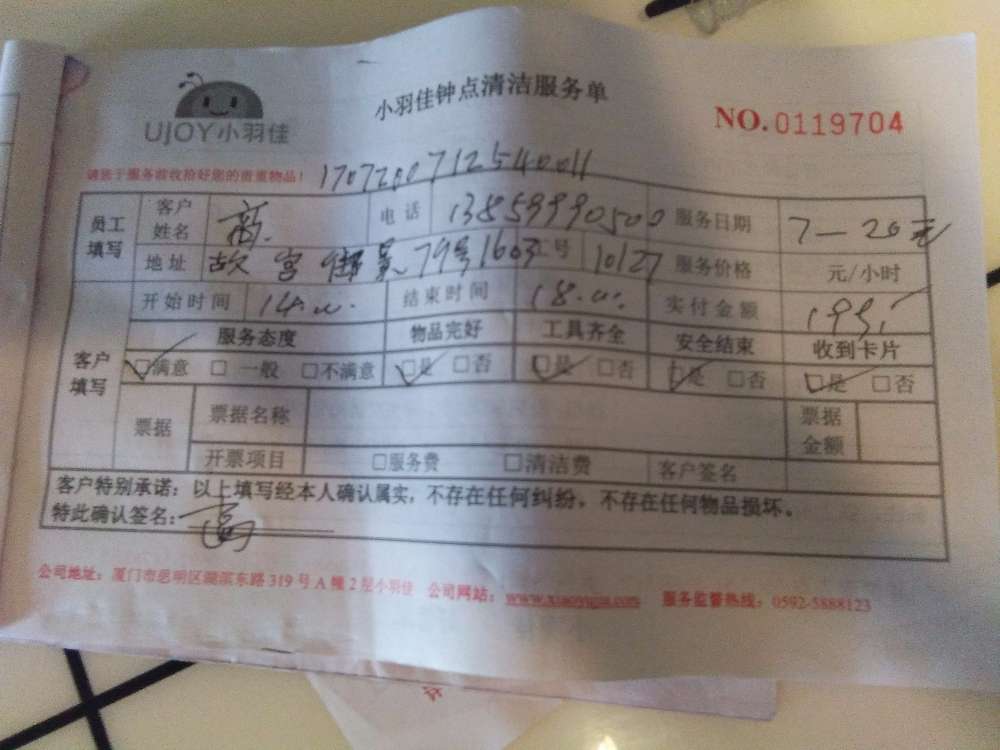 UJOY小羽佳
小羽佳钟点清洁服务单
NO.0119704
请客户服务前收拾好您的贵重物品！
1707200712540011
员工填写 客户姓名 高 电话 13859990500 服务日期 7—20
地址 故宫御景79号1603 工号 10127 服务价格 元/小时
开始时间 14:00 结束时间 18:00 实付金额
客户填写 服务态度 物品完好 工具齐全 安全结束 收到卡片
☑满意 □一般 □不满意 ☑是 □否 ☑是 □否 ☑是 □否 ☑是 □否
票据 票据名称 票据金额
开票项目 □服务费 □清洁费 客户签名
客户特别承诺：以上填写经本人确认属实，不存在任何纠纷，不存在任何物品损坏。
特此确认签名：高
公司地址：厦门市思明区湖滨东路319号A幢2层小羽佳 公司网站：www.xiaoyujia.com 服务监督热线：0592-5888123